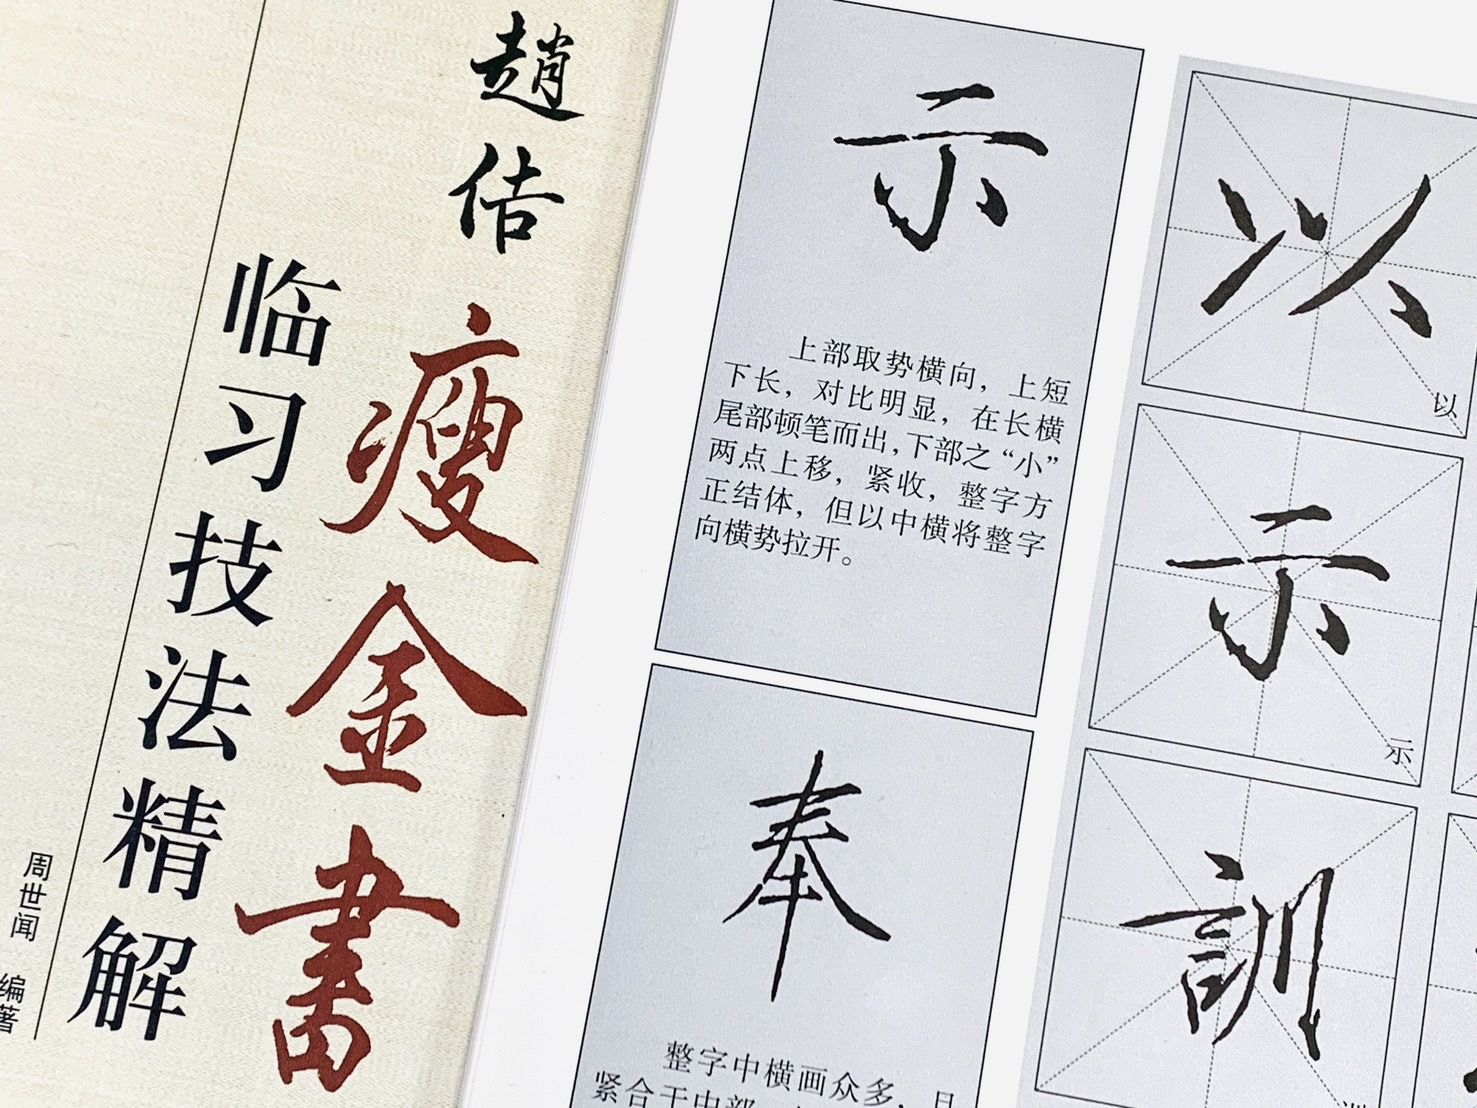 趙佶
瘦金書
临习技法精解
周世闻 编著
示
上部取势横向，上短
下长，对比明显，在长横
尾部顿笔而出，下部之“小”
两点上移，紧收，整字方
正结体，但以中横将整字
向横势拉开。
奉
整字中横画众多，且
紧合于中部
以
以
示
示
訓